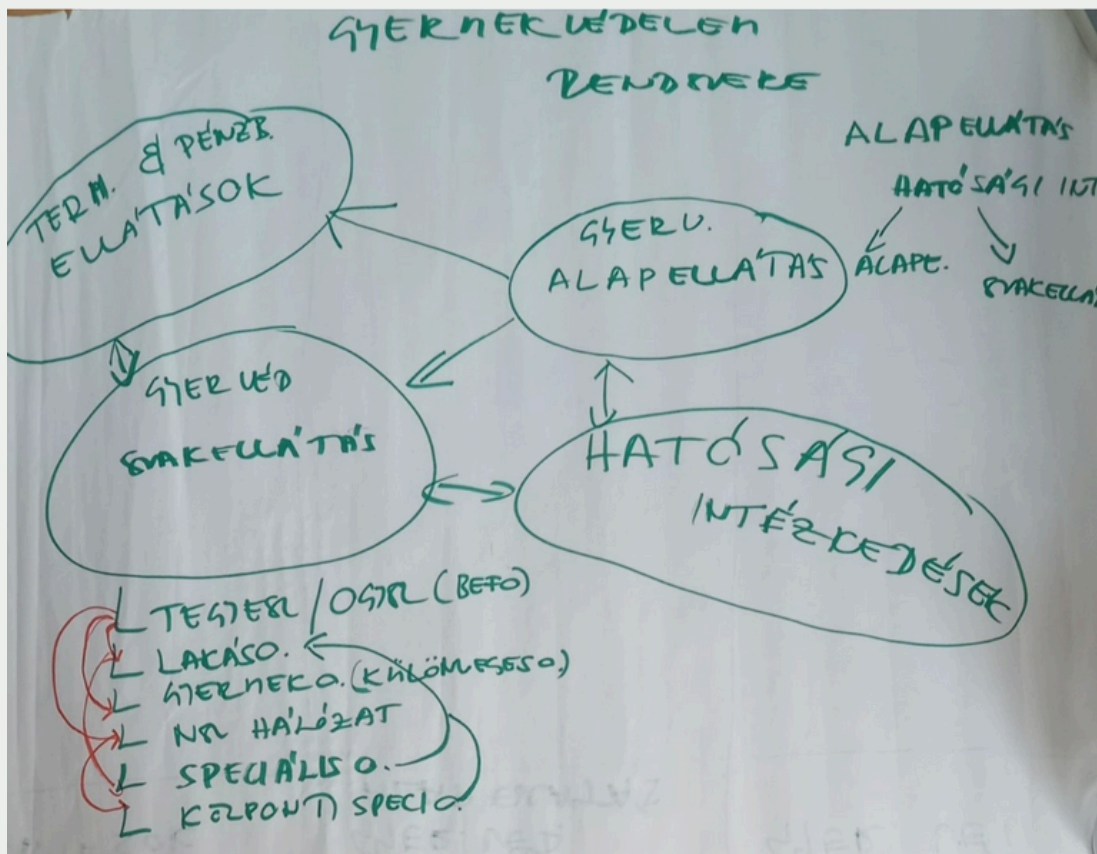 GYERMEKVÉDELEM
RENDSZERE
TERM. & PÉNZB.
ELLÁTÁSOK
GYERV.
ALAPELLÁTÁS
ALAPELLÁTÁS
HATÓSÁGI INT
ALAPE.
SZAKELLÁ
GYERVÉD
SZAKELLÁTÁS
HATÓSÁGI
INTÉZKEDÉSEK
TEGYESZ /OGYSZ (BEFO)
LAKÁSO.
GYERMEKO. (KÜLÖNLEGESO.)
NSZ HÁLÓZAT
SPECIÁLIS O.
KÖZPONTI SPECI O.